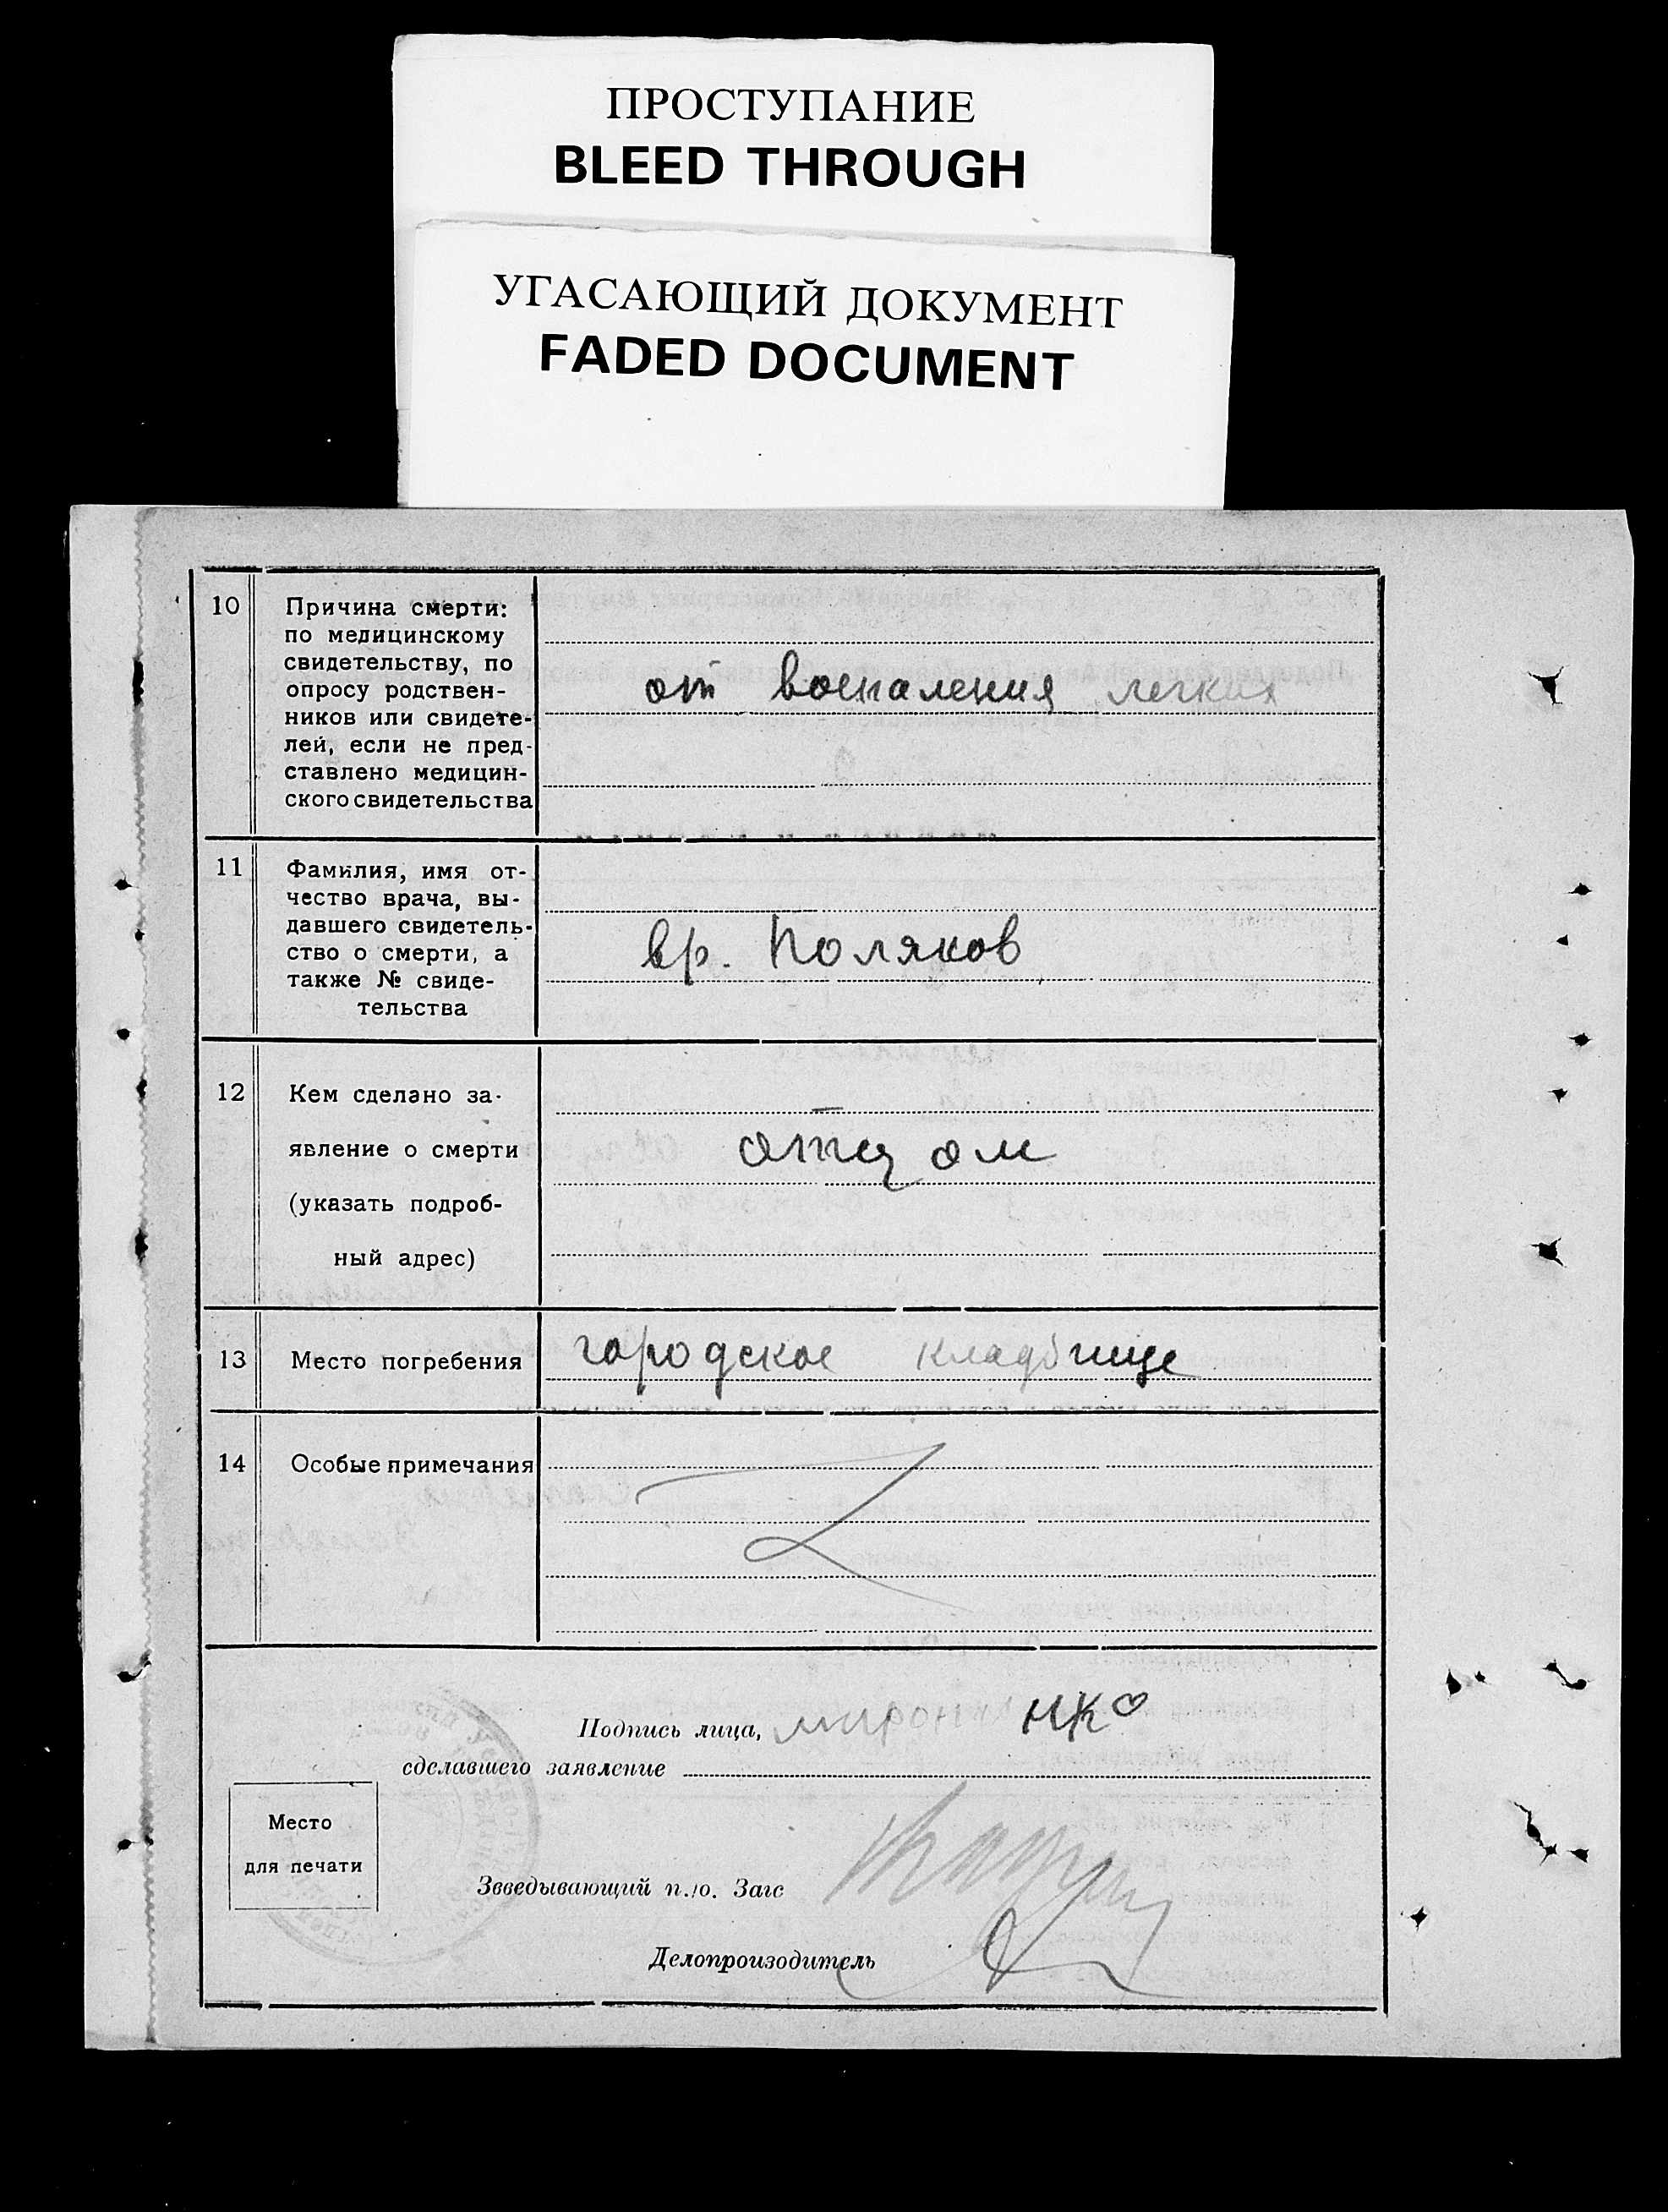 ПРОСТУПАНИЕ
BLEED THROUGH
УГАСАЮЩИЙ ДОКУМЕНТ
FADED DOCUMENT
10
Причина смерти:
по медицинскому
свидетельству, по
опросу родствен-
ников или свидете-
лей, если не пред-
ставлено медицин-
ского свидетельства
от воспаления легких
11
Фамилия, имя от-
чество врача, вы-
давшего свидетель-
ство о смерти, а
также № свиде-
тельства
вр. Поляков
12
Кем сделано за-
явление о смерти
(указать подроб-
ный адрес)
отцом
13
Место погребения
городское кладбище
14
Особые примечания
Подпись лица,
сделавшего заявление
миронинко
Место
для печати
Зведывающий п./о. Загс
Делопроизводитель